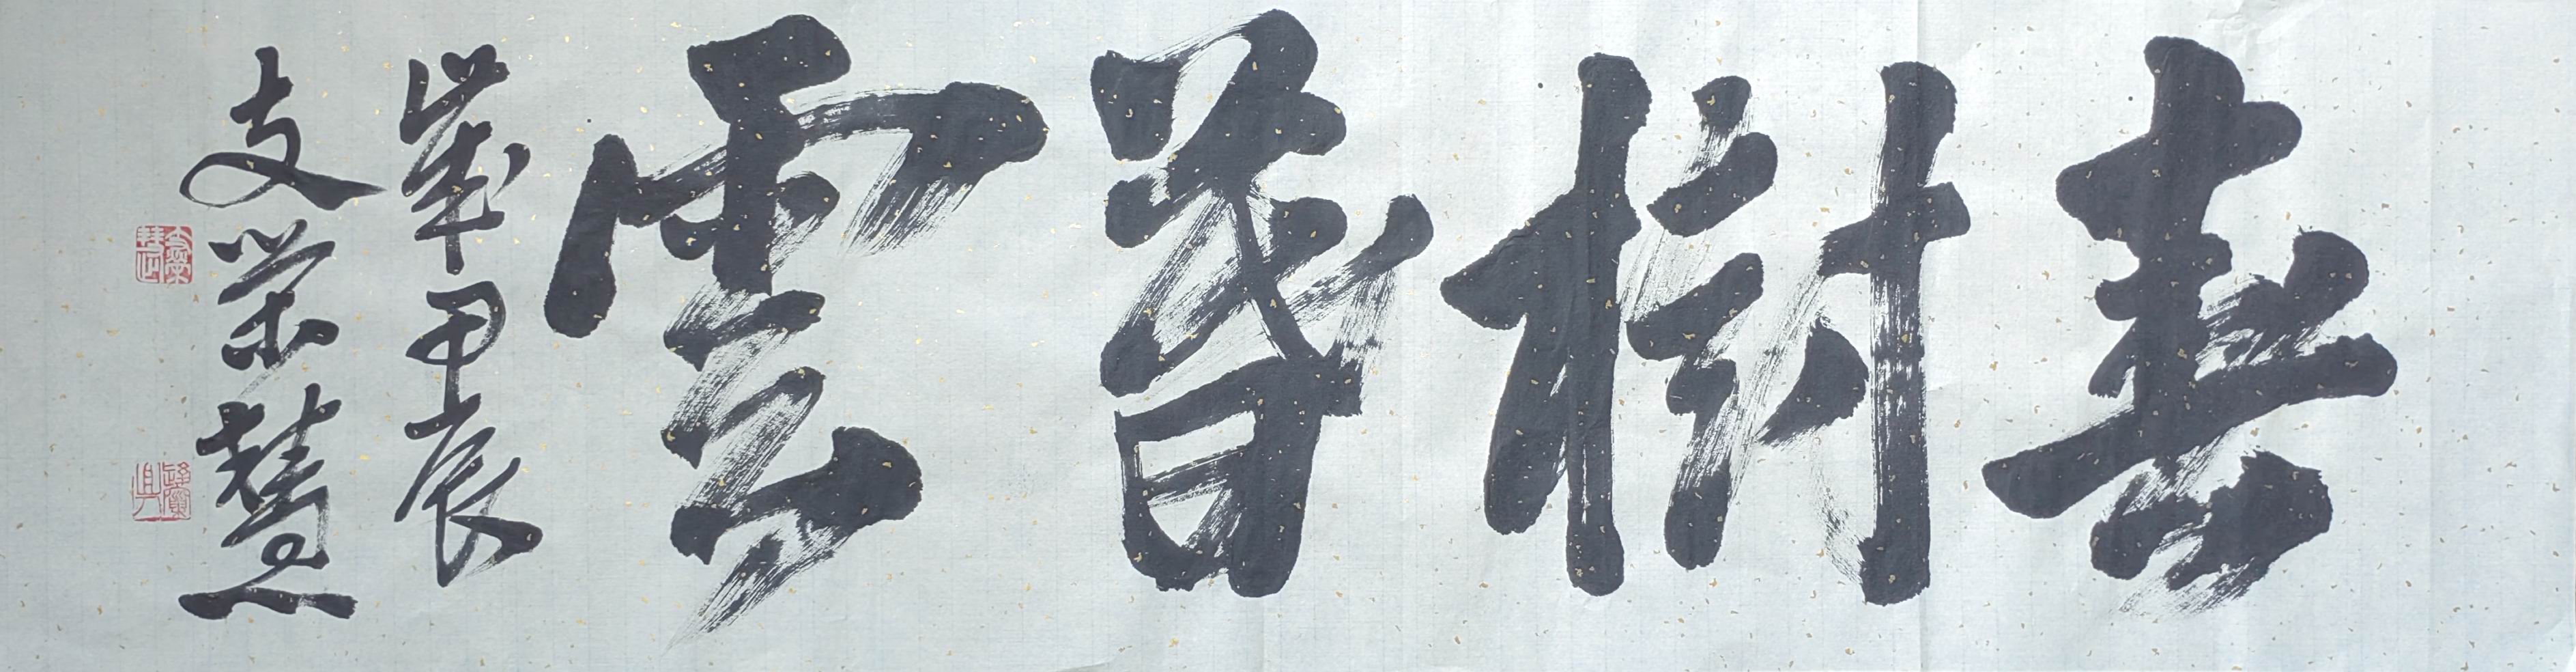 春樹暮雲
歲甲辰
支榮慧